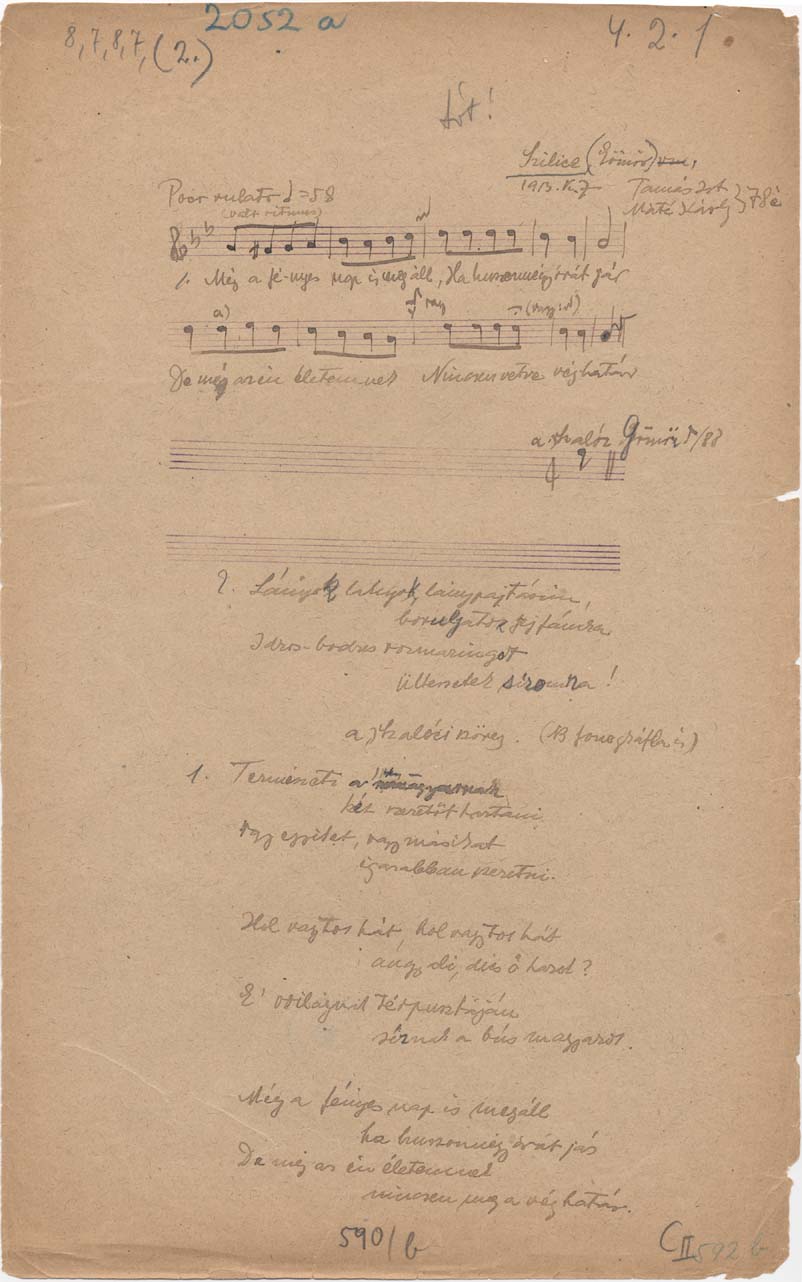 8, 7, 8, 7, (2.)
2052 a
4. 2. 1.
tót!
Szilice (Gömör)
1913.
Poco rubato = 58
(vált ritmus)
Tamás
Máté Károly } 78 é
1. Még a fé-nyes nap is megáll, Ha huszonnégy órát jár
a)
vagy
(vagy:
De még az én életemnek Nincsen vetve véghatár
a Gömör
2. Lányok, lányok, lánypajtásim,
boruljatok fejfámra
Idros-bodros rozmaringot
Ültessetek síromra!
a (B fonográfba is)
1. Természeti a
két szeretőt tartani
Vagy egyiket, vagy másikat
igazabban szeretni.
Hol vagytok hát, hol vagytok hát
angyali, dicső karok?
E' világnak térpusztáján
sírnak a bús magyarok.
Még a fényes nap is megáll
ha huszonnégy órát jár
De még az én életemnek
nincsen meg a véghatár.
590/b
C II 592 b